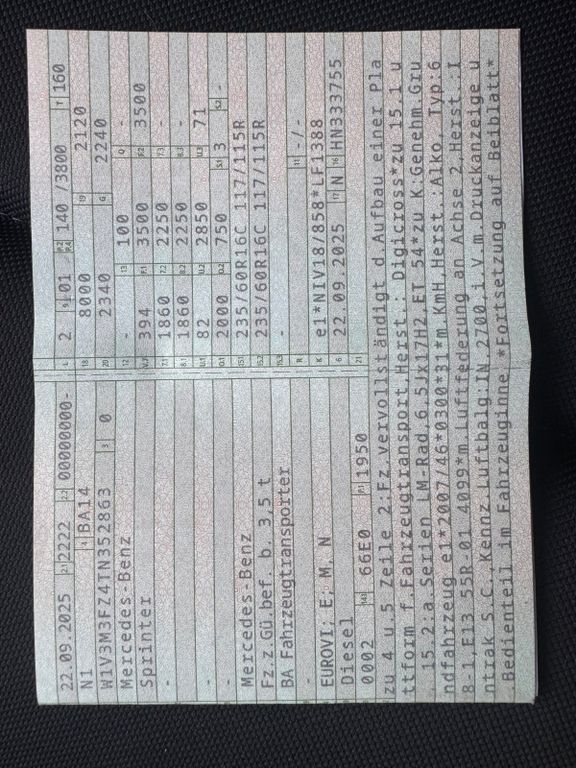 22.09.2025 2.1 2222 2.2 00000000-
N1 4 BA14
W1V3M3FZ4TN352863 3 0
Mercedes-Benz
Sprinter
-
-
-
Mercedes-Benz
Fz.z.Gü.bef. b. 3,5 t
BA Fahrzeugtransporter
-
EUROVI; E; M, N
Diesel
0002 14.1 66E0 P.1 1950
L 2 9 01 P.2 P.4 140 /3800 T 160
18 8000 19 2120
20 2340 G 2240
12 - 13 100 Q -
V.7 394 F.1 3500 F.2 3500
7.1 1860 7.2 2250 7.3 -
8.1 1860 8.2 2250 8.3 -
U.1 82 U.2 2850 U.3 71
O.1 2000 O.2 750 S.1 3 S.2 -
15.1 235/60R16C 117/115R
15.2 235/60R16C 117/115R
15.3 -
R 11 -/-
K e1*NIV18/858*LF1388
6 22.09.2025 17 N 16 HN333755
21
zu 4 u.5 Zeile 2:Fz.vervollständigt d Aufbau einer Pla
ttform f.Fahrzeugtransport,Herst.: Digicross*zu 15.1 u
15.2:a.Serien LM-Rad,6.5Jx17H2,ET 54*zu K:Genehm.Gru
ndfahrzeug e1*2007/46*0300*31*m.KmH,Herst.:Alko, Typ:6
8-1,E13 55R-01 4099*m.Luftfederung an Achse 2,Herst.:I
ntrak S.C., Kennz.Luftbalg:IN 2700,i.V.m.Druckanzeige u
Bedienteil im Fahrzeuginne *Fortsetzung auf Beiblatt*